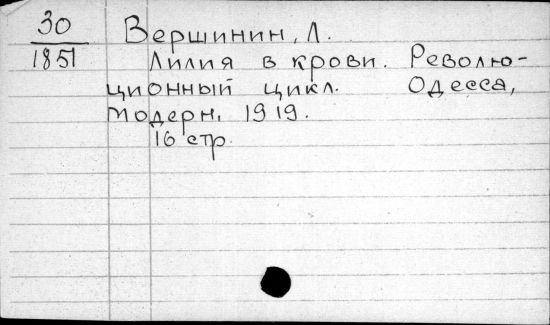 30
1851
Вершинин, Л.
Лилия в крови. Револю-
ционный цикл. Одесса,
Модерн, 1919.
16 стр.